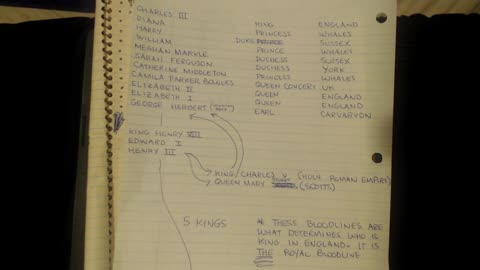 CHARLES III KING ENGLAND
DIANA PRINCESS WHALES
HARRY DUKE PRINCE SUSSEX
WILLIAM PRINCE WHALES
MEGHAN MARKLE DUCHESS SUSSEX
SARAH FERGUSON DUCHESS YORK
CATHERINE MIDDLETON PRINCESS WHALES
CAMILA PARKER BOWLES QUEEN CONCERT UK
ELIZABETH II QUEEN ENGLAND
ELIZABETH I QUEEN ENGLAND
GEORGE HERBERT EARL CARVARVON
KING HENRY VIII
EDWARD I
HENRY III
KING CHARLES V (HOLY ROMAN EMPIRE)
QUEEN MARY (SCOTTS)
5 KINGS
* THESE BLOODLINES ARE
WHAT DETERMINES WHO IS
KING IN ENGLAND - IT IS
THE ROYAL BLOODLINE